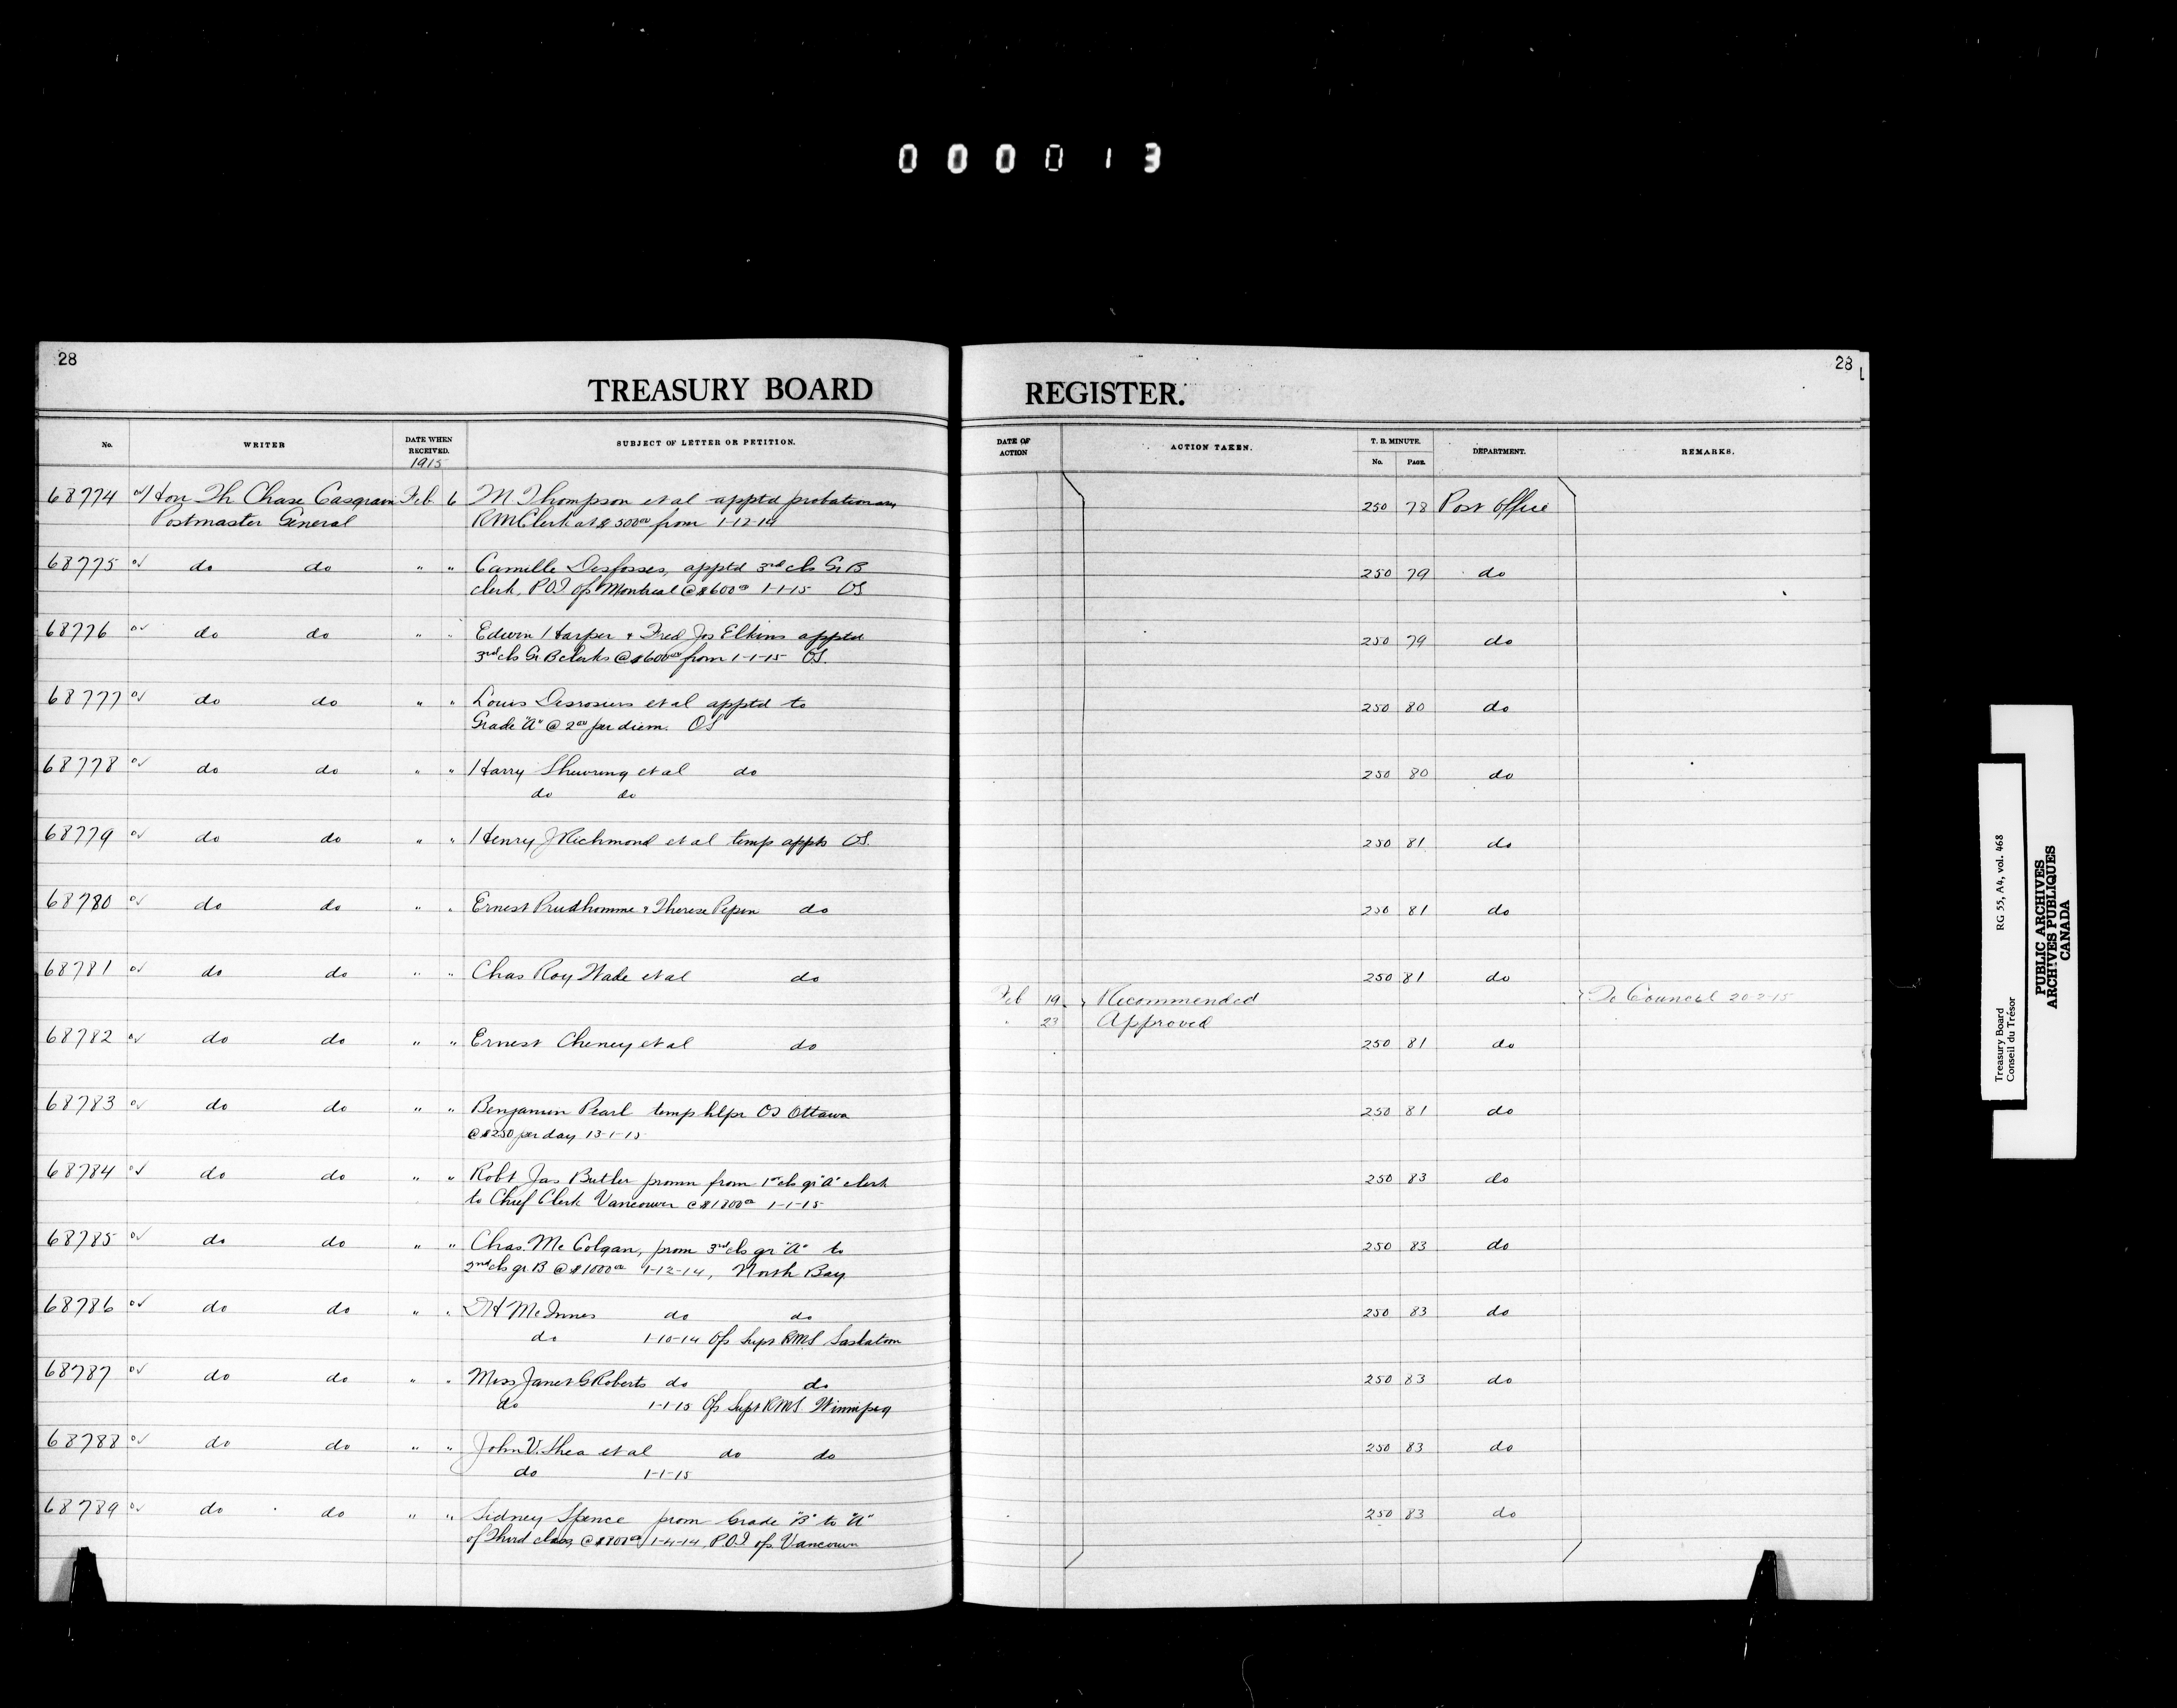 000013
28
TREASURY BOARD
REGISTER.
28
No.
WRITER
DATE WHEN RECEIVED.
1915
SUBJECT OF LETTER OR PETITION.
DATE OF ACTION
ACTION TAKEN.
T. B. MINUTE.
No.
PAGE.
DEPARTMENT.
REMARKS.
68774 Hon Th Chase Casgrain Feb 6 M Thompson et al apptd probationary 250 78 Post Office
Postmaster General RMClerk at $500 00 from 1-12-14
68775 do do " " Camille Desfosses, apptd 3rd cls Gr B 250 79 do
clerk, P.O.I ofs Montreal @ $600 00 1-1-15 OS
68776 do do " " Edwin Harper & Fred Jos Elkins apptd 250 79 do
3rd cls Gr B clerks @ $600 00 from 1-1-15 OS.
68777 do do " " Louis Desrosiers et al apptd to 250 80 do
Grade "A" @ 2 00 per diem. OS
68778 do do " " Harry Shewring et al do 250 80 do
do do
68779 do do " " Henry J Richmond et al temp appts OS. 250 81 do
68780 do do " " Ernest Prudhomme & Therese Pepin do 250 81 do
68781 do do " " Chas Roy Wade et al do 250 81 do
Feb 19 Recommended To Council 20-2-15
" 23 Approved
68782 do do " " Ernest Cheney et al do 250 81 do
68783 do do " " Benjamin Pearl temp hlpr OS Ottawa 250 81 do
@ $2 50 per day 13-1-15
68784 do do " " Robt Jas Butler promn from 1st cls gr "A" clerk 250 83 do
to Chief Clerk Vancouver @ $1800 00 1-1-15
68785 do do " " Chas. McColgan, prom 3rd cls gr "A" to 250 83 do
2nd cls gr B @ $1000 00 1-12-14, North Bay
68786 do do " " DH McInnes do do 250 83 do
do 1-10-14 Ofs Supt RMS Saskatoon
68787 do do " " Miss Janet G Roberts do do 250 83 do
do 1-1-15 Ofs Supt RMS Winnipeg
68788 do do " " John V. Shea et al do do 250 83 do
do 1-1-15
68789 do do " " Sidney Spence prom Grade "B" to "A" 250 83 do
of Third class, @ $800 00 1-4-14, P.O.I ofs. Vancouver
Treasury Board RG 55, A4, vol. 468
Conseil du Trésor
PUBLIC ARCHIVES
ARCHIVES PUBLIQUES
CANADA